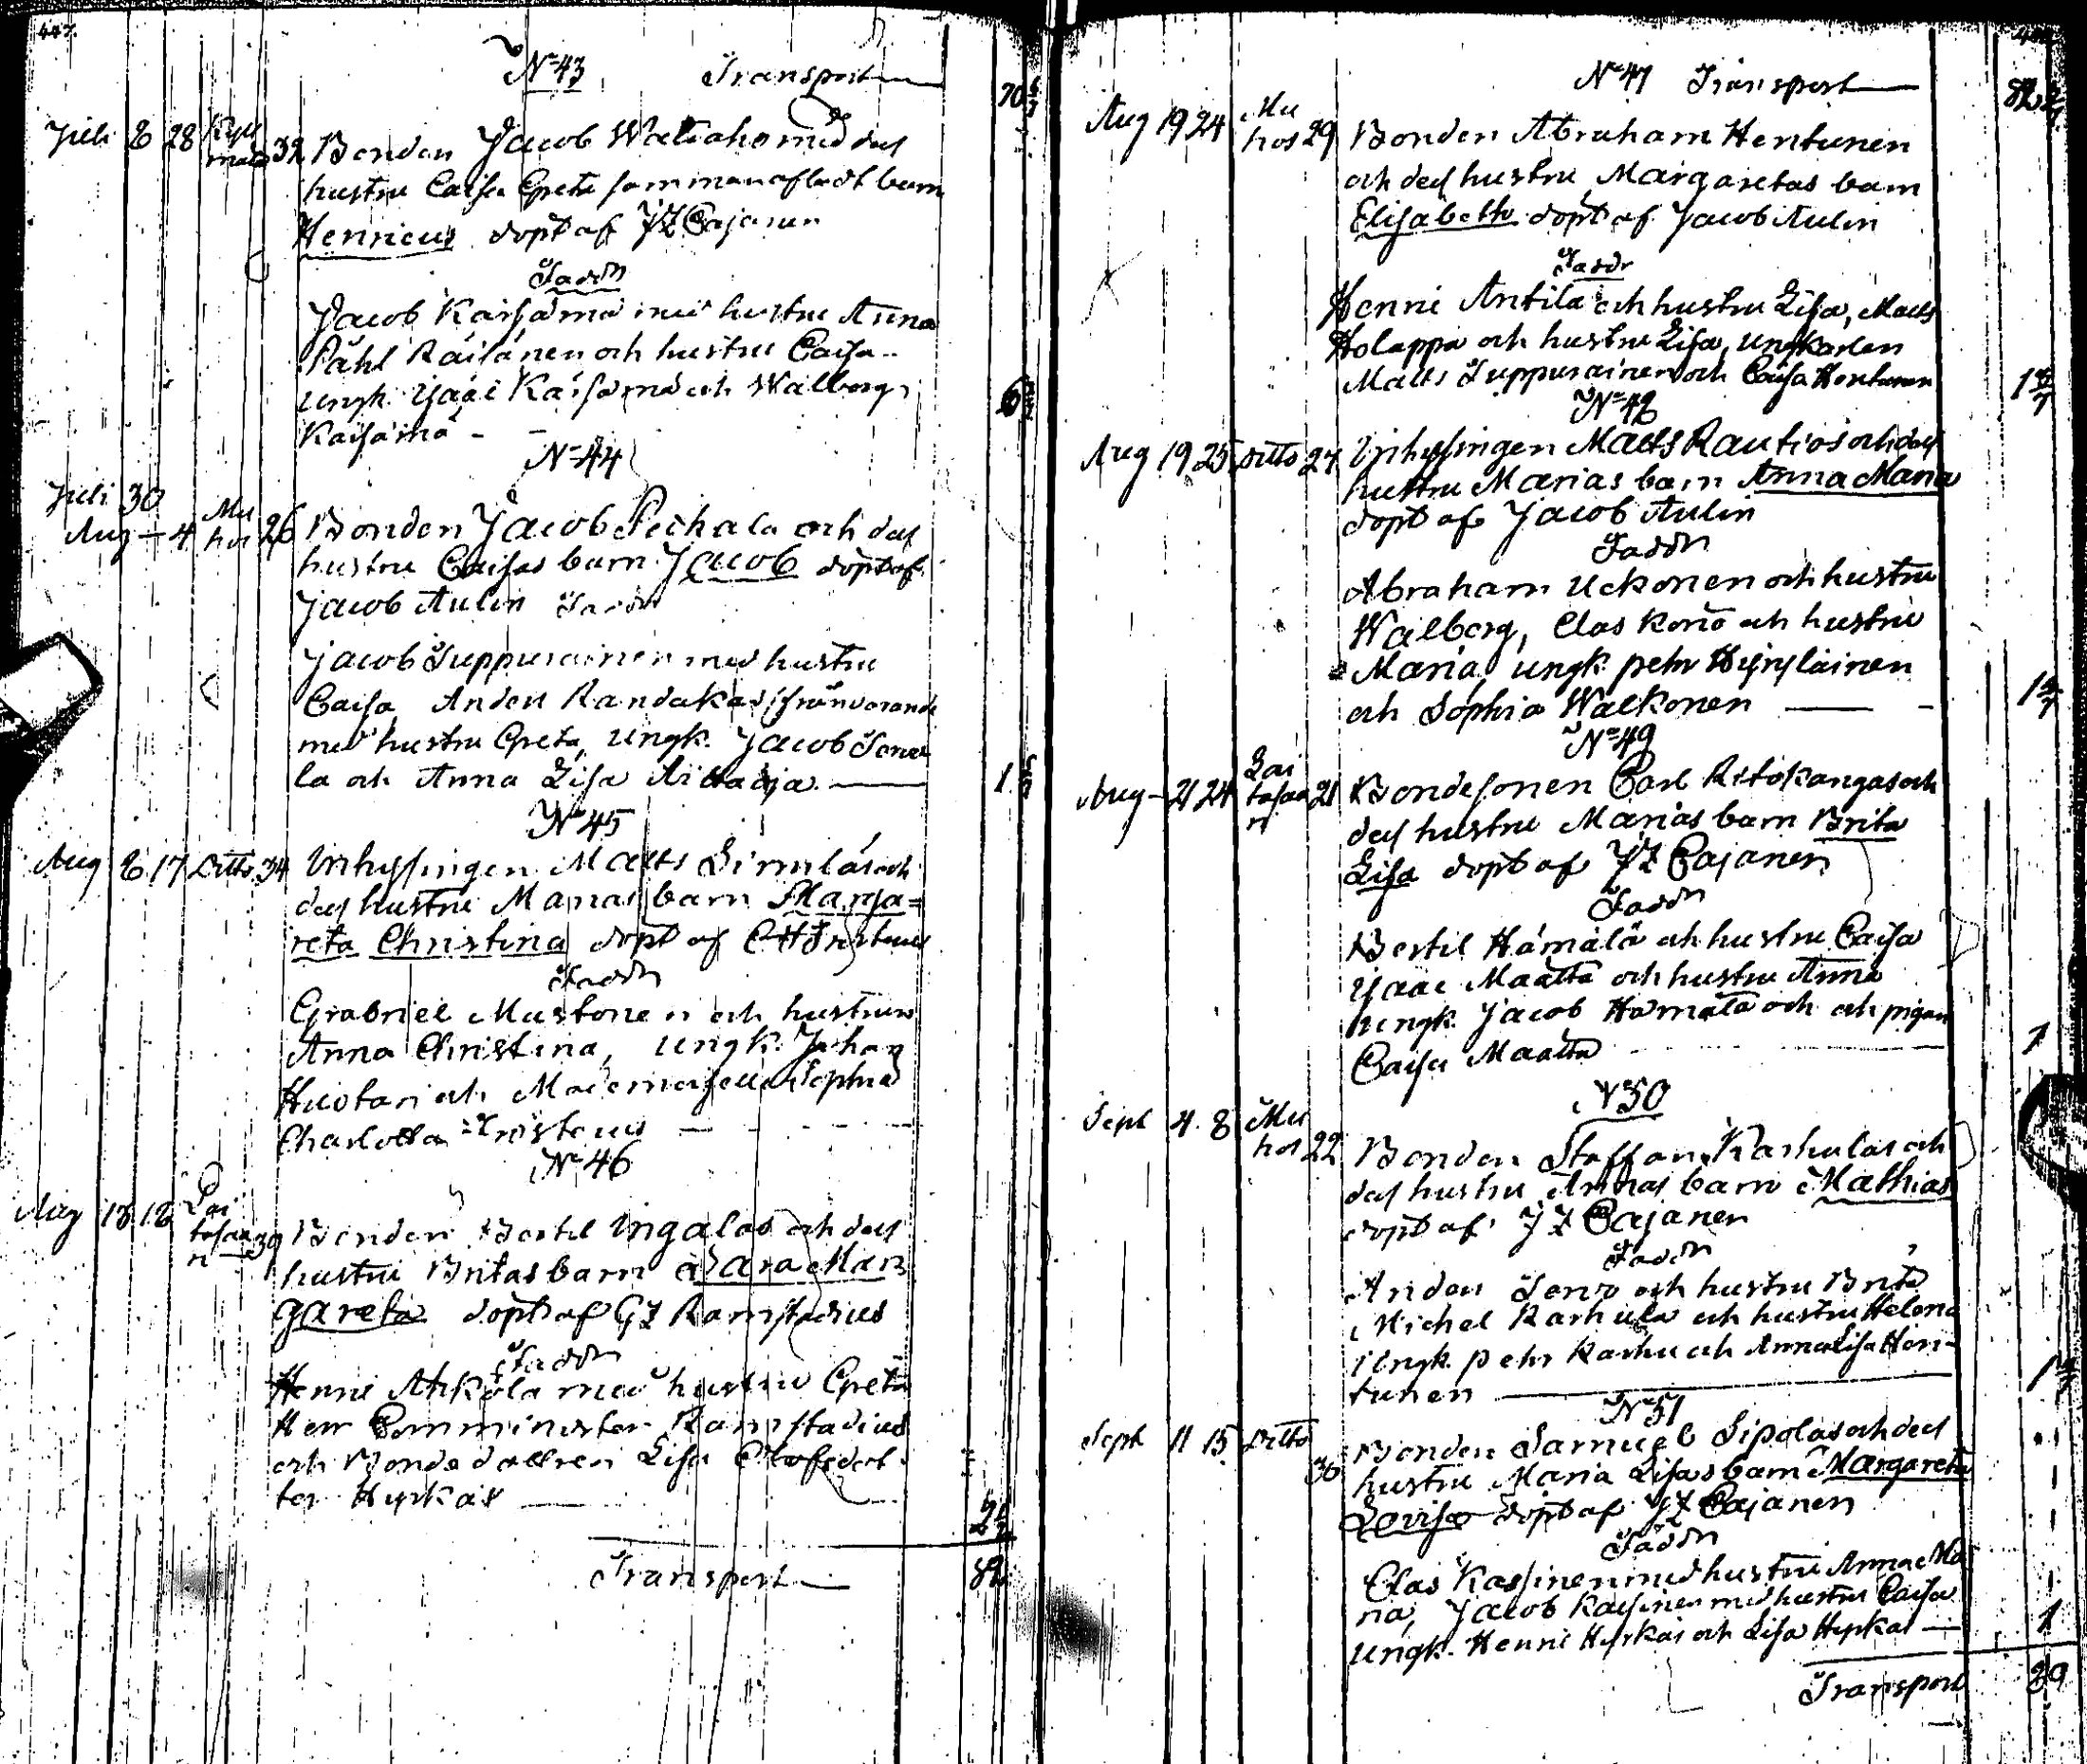 447.
N=43 Transport
70 6/7
Juli 8 28 Kyll
maa 32 Bonden Jacob Waltiaho med des
hustru Caisa Greta sammanafladt barn
Henricus döpt af JZ Cajanen
Fadd
Jacob Kaisamä med hustru Anna
Påhl Räisänen och hustru Caisa
ungk. Isaac Kaisamä och Walborg
Kaisamä
N=44
Juli 30
Aug - 4 Mu
hos 26 Bonden Jacob Pechala och des
hustru Caisas barn Jacob döpt af
Jacob Aulin Fadd
Jacob Suppurainen med hustru
Caisa Anders Randaka frånvarande
med hustru Greta, ungk. Jacob
la och Anna Lisa
N=45
Aug 8 17 Ditto 34 Inhysingen Matts Simelas och
des hustru Marias barn Marga=
reta Christina döpt af CH Frosterus
Fadd
Gabriel Mustonen och hustrun
Anna Christina, ungk. Johan
Huotari och Mademoiselle Sophia
Charlotta Frosterus
N=46
Aug 18 18 Lai
tasaa
n 30 Bonden Bertil Ingalas och des
hustru Britas barn Sara Mar
gareta döpt af GZ Ramstadius
Fadd
Henric Ahkola med hustru Greta
Herr Comminister Ramstadius
och Bondedottren Lisa Olofsdot
ter Hyrkäs
Transport 82
N=47 Transport
82
Aug 19 24 Mu
hos 29 Bonden Abraham Hentunen
och des hustru Margaretas barn
Elisabeth döpt af Jacob Aulin
Fadd
Henric Antila och hustru Lisa, Matts
Holappa och hustru Lisa, ungkarlen
Matts Suppurainen och Caisa Hentunen
N=48
Aug 19 25 Ditto 24 Inhysingen Matts Rautios och des
hustru Marias barn Anna Maria
döpt af Jacob Aulin
Fadd
Abraham Uckonen och hustru
Walborg, Clas Kono och hustru
Maria, ungk. Pehr Hyryläinen
och Sophia Walkonen
N=49
Aug - 21 24 Lai
tasaa
n 21 Bondesonen Carl Ritokangas och
des hustru Marias barn Brita
Lisa döpt af JZ Cajanen
Fadd
Bertil Hämälä och hustru Caisa
Isaac Määttä och hustru Anna
ungk. Jacob Hämälä och och pigan
Caisa Määttä
1
N 50
Sept 4 8 Mu
hos 22 Bonden Staffan Karhulas och
des hustru Annas barn Mathias
döpt af JZ Cajanen
Fadd
Anders Servo och hustru Brita
Michel Karhula och hustru Helena
ungk. Pehr Karhu och Anna Lisa Hen-
tunen
N=51
Sept 11 15 Ditto
36 Bonden Samuel Sipolas och des
hustru Maria Lisas barn Margareta
Lovisa döpt af JZ Cajanen
Fadd
Clas Kassinen med hustru Anna Ma
ria, Jacob Kassinen med hustru Caisa
ungk. Henric Hyrkäs och Lisa Hyrkäs
1
Transport 89